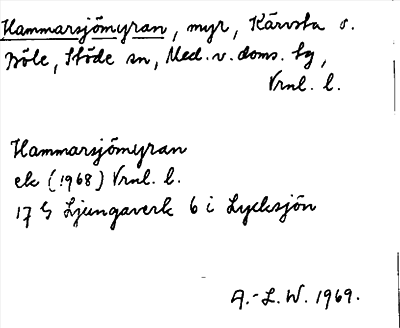 Hammarsjömyran, myr, Kärvsta o.
Böle, Stöde sn, Med. v. doms. tg,
Vrnl. l.
Hammarsjömyran
ek (1968) Vrnl. l.
17 G Ljungaverk 6 i Lycksjön
A.-L.W. 1969.